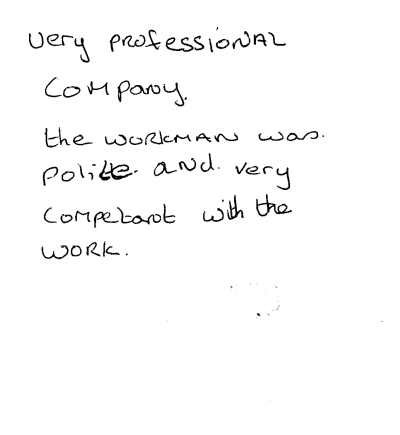 very professional
Company.
the workman was.
polite. and. very
competant with the
work.